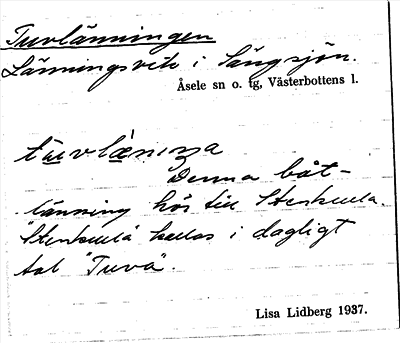 Tuvlänningen
Länningsvik i Långsjön.
Åsele sn o. tg, Västerbottens l.
Denna båt-
länning hör till Stenkulla.
"Stenkulla kallas i dagligt
tal "Tuva".
Lisa Lidberg 1937.